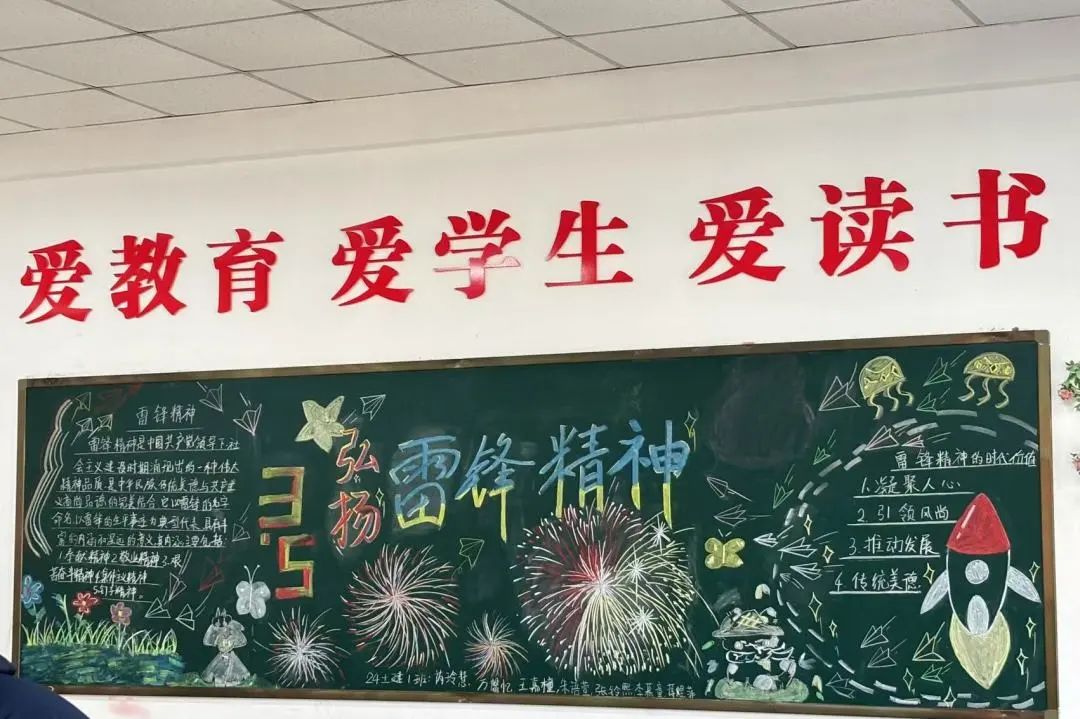 爱教育 爱学生 爱读书
雷锋精神
雷锋精神是中国共产党领导下社
会主义建设时期涌现出的一种伟大
精神品质是中华民族传统美德与共产主
义者尚品德的完美结合它以雷锋的名字
命名以雷锋的生平事迹为典型代表具有丰
富的内涵和深远的意义其内涵主要包括:
1.奉献精神 2.敬业精神 3.艰
苦奋斗精神 4.集体主义精神
5.钉子精神。
3.5
弘扬
雷锋精神
雷锋精神的时代价值
1.凝聚人心
2.引领风尚
3.推动发展
4.传统美德
24土建1班:
王嘉